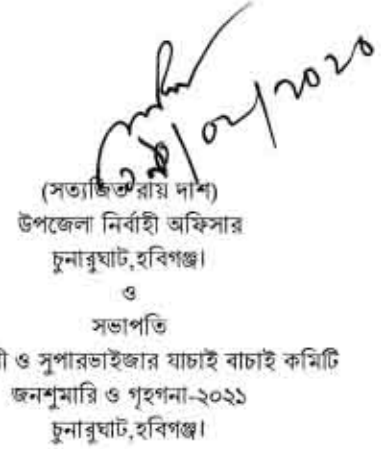 (সত্যজিত রায় দাশ)
উপজেলা নির্বাহী অফিসার
চুনারুঘাট,হবিগঞ্জ।
ও
সভাপতি
ী ও সুপারভাইজার যাচাই বাচাই কমিটি
জনশুমারি ও গৃহগনা-২০২১
চুনারুঘাট,হবিগঞ্জ।